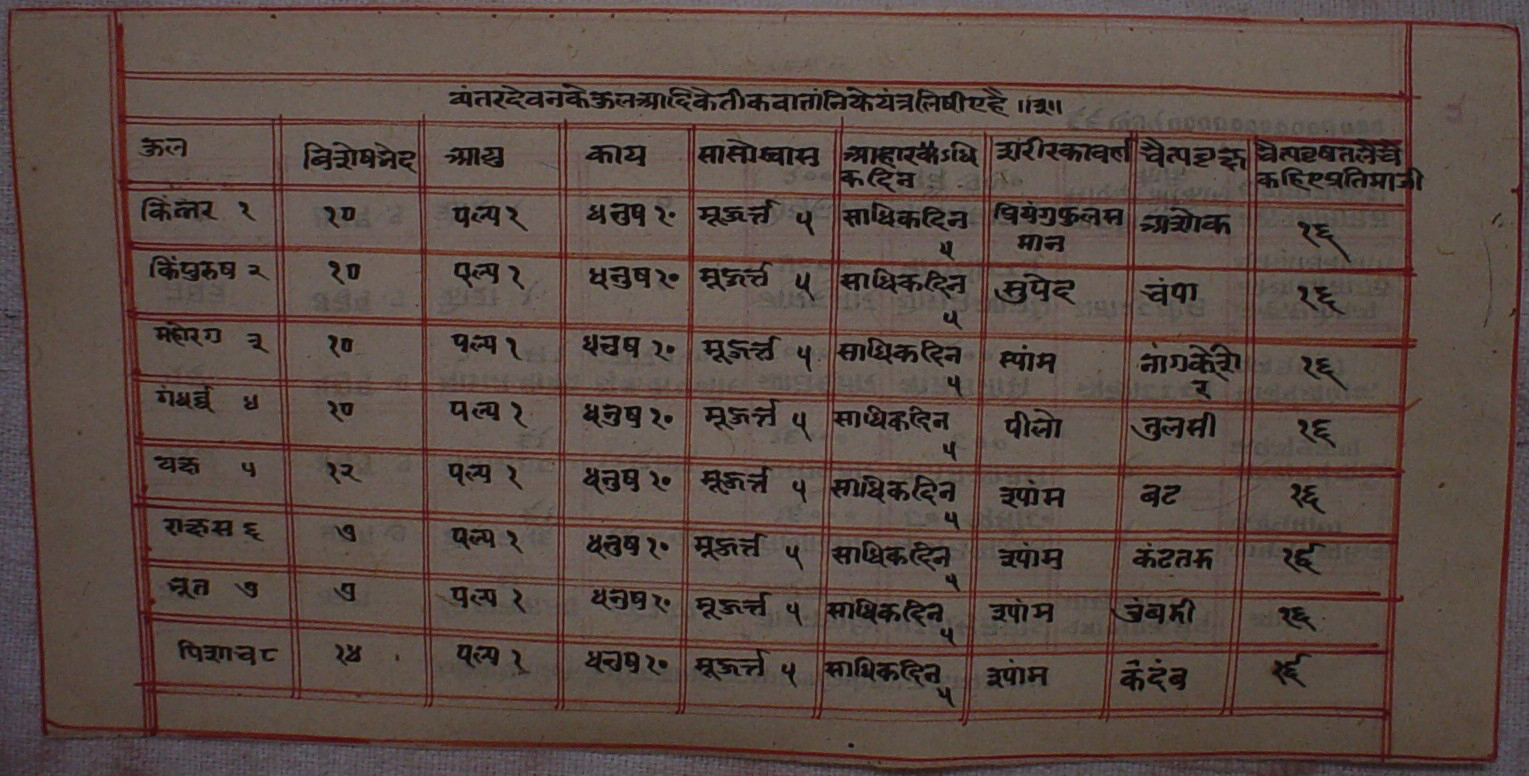 व्यंतरदेवनके कुल आदि केतीक वार्तानिके यंत्र लिषीए है ॥३॥
कुल विशेषभेद आयु काय सासोस्वास आहारकैऽधिक दिन शरीरका वर्ण चैत्यवृक्ष चैत्यवृषतलैचै कहिए प्रतिमाजी
किंनर १ १० पल्य १ धनुष १० मूहूर्त्त ५ साधिक दिन ५ प्रियंगुफुलसमान अशोक १६
किंपुरुष २ १० पल्य १ धनुष १० मूहूर्त्त ५ साधिक दिन ५ सुपेद चंपा १६
महोरग ३ १० पल्य १ धनुष १० मूहूर्त्त ५ साधिक दिन ५ स्यांम नांगकेशर १६
गंधर्व ४ १० पल्य १ धनुष १० मूहूर्त्त ५ साधिक दिन ५ पीलो तुलसी १६
यक्ष ५ १२ पल्य १ धनुष १० मूहूर्त्त ५ साधिक दिन ५ श्यांम बट १६
राक्षस ६ ७ पल्य १ धनुष १० मूहूर्त्त ५ साधिक दिन ५ श्यांम कंटतरु १६
भूत ७ ७ पल्य १ धनुष १० मूहूर्त्त ५ साधिक दिन ५ श्यांम १६
पिशाच ८ १४ पल्य १ धनुष १० मूहूर्त्त ५ साधिक दिन ५ श्यांम केदंब १६